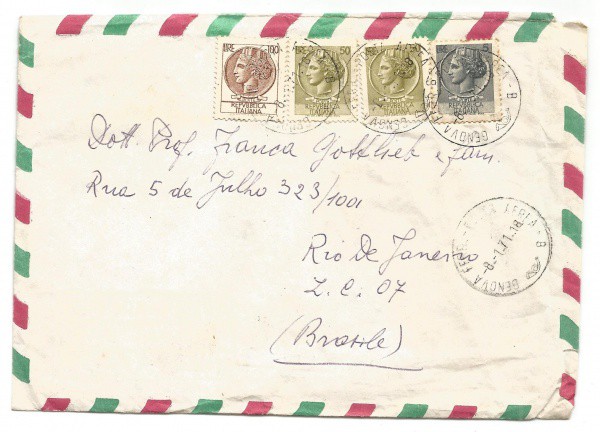 LIRE 100
REPVBBLICA
ITALIANA
LIRE 50
REPVBBLICA
ITALIANA
50
REPVBBLICA
ITALIANA
5
REPVBBLICA
ITALIANA
B
GENOVA
Dott. Prof. Franca Gottlieb e fam.
Rua 5 de Julho 323/1001
Rio De Janeiro
Z.C. 07
(Brasile)
AEREA - B
GENOVA
8.-1.71.18